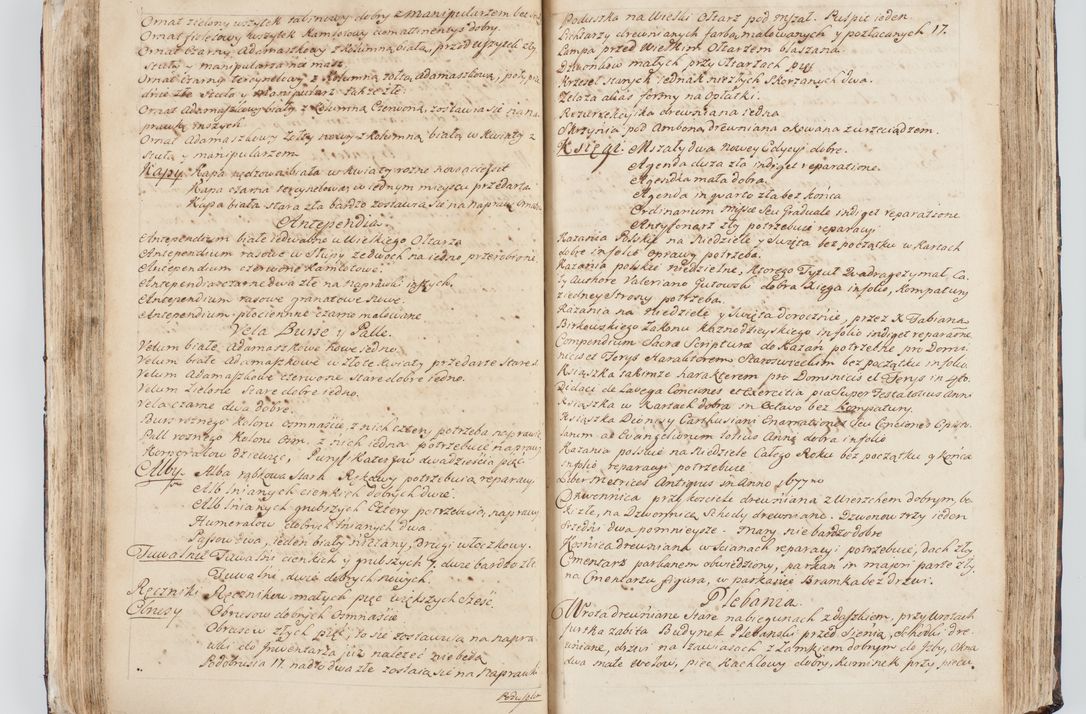 Ornat zielony wszytek tabinowy dobry z manipularzem bez
Ornat fioletowy wszytek kamlotowy cum attinentys dobry.
Ornat czarny Adamaszkowy z kolumną białą, przed y zły
Stuły y manipularza nie masz.
Ornat czarny tercynelowy z kolumną żołtą adamaszkową,
dnie złe Stuła y manipularz także złe.
Ornat Adamaszkowy biały z kolumną Czerwoną, zostawa się na na
prawkę inszych
Ornat Adamaszkowy żołty nowy z kolumną białą w kwiaty z
Stułą y manipularzem
Kapy. Kapa biała w kwiaty rozne
Kapa czarna tercynelowa, w jednym mieyscu przedarta
Kapa biała stara zła bardzo zostawa się na naprawę
Antependia.
Antependium białe iedwabne u Wielkiego Ołtarza
Antependium rasowe w Słupy ze dwoch na iedno przerobione.
Antependium czerwone kamlotowe.
Antependia czarne dwa złe na naprawki inszych.
Antependium rasowe granatowe Nowe.
Antependium płocienne czarne malowane
Vela Burse y Palle.
Velum białe Adamaszkowe nowe iedno.
Velum białe Adamaszkowe w złote kwiaty, przedarte Stare 1.
Velum Adamaszkowe czerwone Stare dobre iedno.
Velum Zielone Stare dobre iedno.
Vela czarne dwa dobre.
Burs roznego koloru osmnaście, z nich cztery potrzeba naprawić
Pall roznego koloru z nich iedna potrzebuie naprawy
Korporałow dziewięć, Puryfikaterzow dwadzieścia pięć
Alby. Alba rąbkowa Stara Rękawy potrzebuią reparacyi
Alb lnianych cienkich dobrych dwie.
Alb lnianych grubszych cztery potrzebuią naprawy
Humerałow dobrych lnianych dwa.
Pasow dwa, ieden biały niciany, drugi włoczkowy.
Tuwalnie Tuwalni cienkich y grubszych 7, dwie bardzo złe
Tuwalni, dwie dobrych nowych.
Ręczniki Ręcznikow małych pięć większych Sześć
Obrusy Obrusow dobrych osmnaście
Obrusow złych pięć, to sie zostawuią na napra-
wki do Inwentarza już należeć nie będą
Podobrusia 17. nadto dwa złe zostaią sie na naprawki
Poduszka
Poduszka na Wielki Ołtarz pod mszał. Pulpit ieden
Lichtarzy drewnianych farbą malowanych y pozłacanych 17.
Lampa przed Wielkim Ołtarzem blaszana.
Dzwonkow małych przy Ołtarzach pięć
Krzeseł starych iednak niezłych Skorzanych dwa.
Zelaza alias formy na Opłatki.
Rezurekcyika drewniana iedna
Skrzynia pod Amboną drewniana okowana z wrzeciądzem.
Księgi. Mszały dwa Nowey Edycyi dobre.
Agenda duza zła indiget reparatione.
Agendka mała dobra.
Agenda in quarto zła bez końca
Ordinarium missæ Seu Graduale indiget reparatione
Antyfonarz zły potrzebuie reparacyi
Kazania Polskie na Niedziele y Swięta bez początku w kartach
dobre infolio oprawy potrzeba.
Kazania polskie niedzielne, ktorego Tytuł Quadragezymal, Ca-
ły Authore Valeriano Gutowski dobra Xięga infolio, kompatury
z iedney strony potrzeba.
Kazania na Niedziele y Swięta doroczne, przez X. Fabiana
Birkowskiego Zakonu kaznodzieyskiego infolio indiget reparatne.
Compendium Sacræ Scripturæ do Kazań potrzebne pro Domi-
nicis et Ferys Harakterem Staroswieckim bez początku infolio
Książka takimze harakterem pro Dominicis et Ferys in 4to.
Didaci de Lavega Conciones et Exercitia pia Super Festalotius Anni
Książka w Kartach dobra in Octavo bez kompatury.
Książka Dionisy Carthusiani Enarrationes Seu Conciones Epist-
larum ac Evangeliorum totius Anni dobra infolio
Kazania polskie na Niedziele Całego Roku bez początku y końca
infolio reparacyi potrzebuie
Liber Metrices Antiquus in Anno 1677mo
Dzwonnica przy kościele drewniana z wierzchem dobrym, be
ki złe, na Dzwonnicę Schody drewniane. Dzwonow trzy ieden
średni dwa pomnieysze. Tnary nie bardzo dobre
Kośnica drewniana w ścianach reparacyi potrzebuie, dach zły
Cmentarz parkanem obwiedziony, parkan in majori parte zły,
na Cmentarzu figura, w parkanie Bramka bez drzwi.
Plebania.
Wrota drewniane Stare na biegunach z daszkiem, przy wrotach
furtka zabita Budynek Plebański przed sienią, Schodki dre-
wniane, drzwi na zawiasach z zamkiem dobrym do Izby, Okna
dwa małe w ołow, piec kachlowy dobry, kuminek przy piecu,